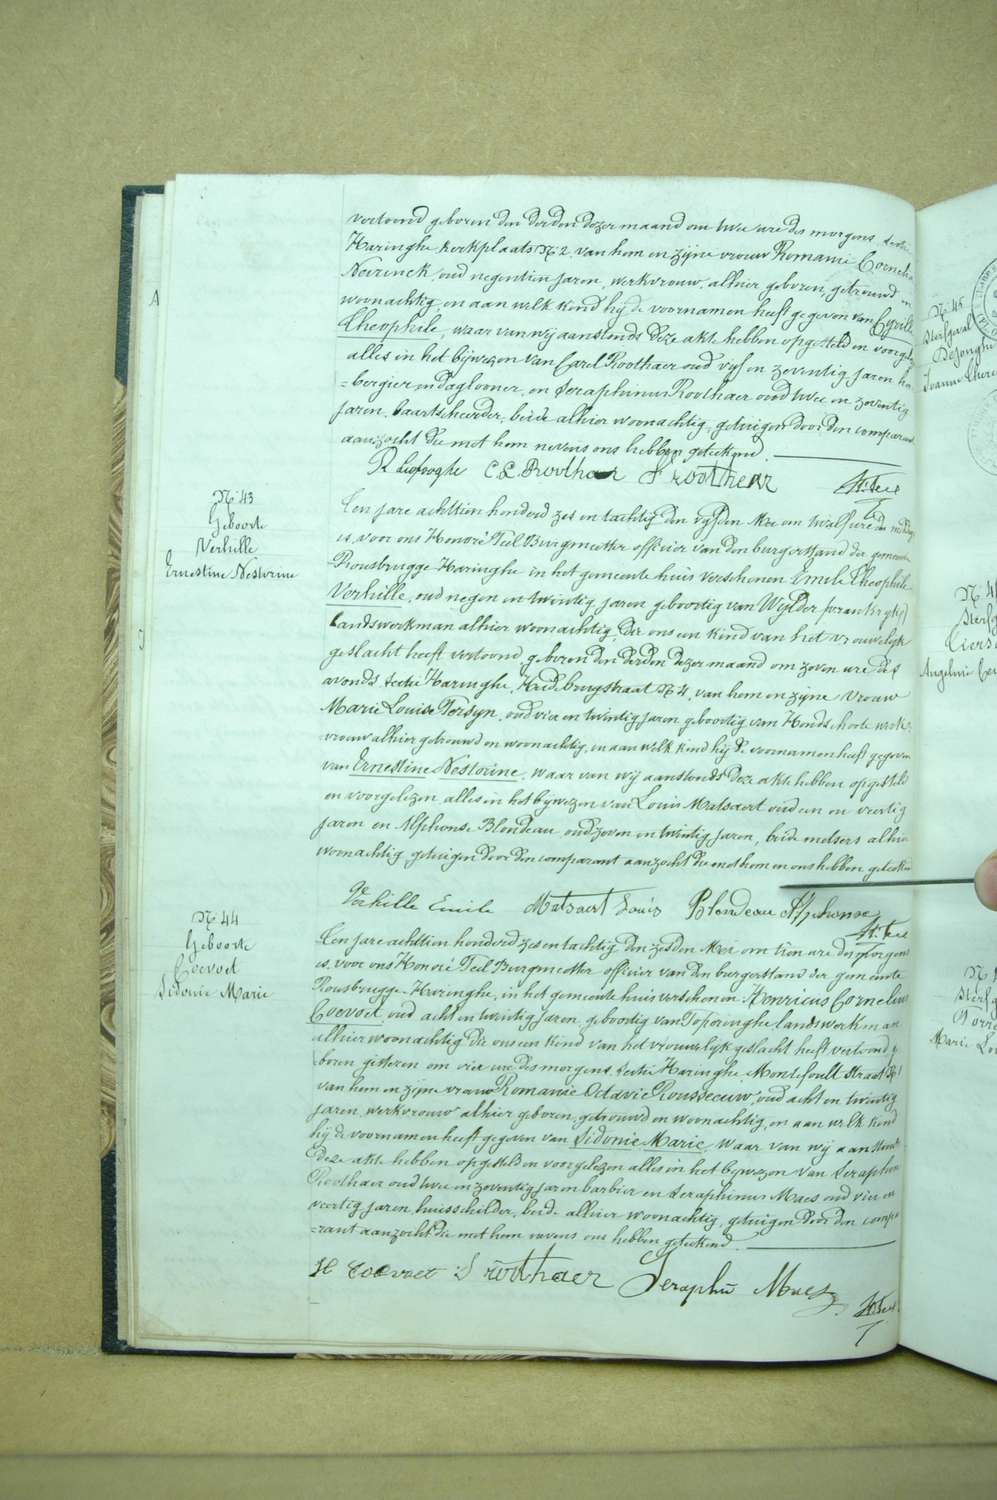 vertoond geboren den derden dezer maand om twee ure des morgens, sectie
Haringhe kerkplaats N° 2, van hem en zijne vrouw Romanie Cornelia
Nevrinck, oud negentien jaren, werkvrouw, alhier geboren, getrouwd en
woonachtig, en aan welk kind hij de voornamen heeft gegeven van Cyrille
Theophile, waar van wij aanstonds deze akte hebben opgesteld en voorgelezen
alles in het bijwezen van Carel Roothaer oud vijf en zeventig jaren her
=bergier en daglooner, en Seraphinus Roothaer oud twee en zeventig
jaren, baartscheerder, beide alhier woonachtig, getuigen door den comparant
aanzocht die met hem nevens ons hebben geteekend.
C L Roothaer S roothaer H. Teel
N° 43
Geboorte
Verhille
Ernestine Nestorine
Een jare achttien honderd zes en tachtig den vyfden Mei om twalf ure des middags
is, voor ons Honoré Teel Burgmeester officier van den burgerstand der gemeente
Rousbrugge-Haringhe in het gemeente huis verschenen Emile Theophile
Verhille, oud negen en twintig jaren geboortig van Wylder (frankryk)
landswerkman alhier woonachtig die ons een kind van het vrouwelijk
geslacht heeft vertoond, geboren den derden dezer maand om zeven ure des
avonds sectie Haringhe, straat N° 4, van hem en zijne vrouw
Marie Louise Tersyn, oud vier en twintig jaren geboortig van Hondschoote werk-
vrouw alhier getrouwd en woonachtig, en aan welk kind hij de voornamen heeft gegeven
van Ernestine Nestorine, waar van wij aanstonds deze akte hebben opgesteld
en voorgelezen alles in het bijwezen van Louis Matsaert oud een en veertig
jaren en Alphonse Blondeau oud zeven en twintig jaren, beide metsers alhier
woonachtig getuigen door den comparant aanzocht die met hem en ons hebben geteekend
Verhille Emile Matsaert Louis Blondeau Alphonse
H. Teel
N° 44
Geboorte
Coevoet
Sidonie Marie
Een jare achttien honderd zes en tachtig den zesden Mei om tien ure des morgens
is, voor ons Honoré Teel Burgmeester officier van den burgerstand der gemeente
Rousbrugge-Haringhe, in het gemeente huis verschenen Henricus Cornelius
Coevoet, oud acht en twintig jaren geboortig van Poperinghe landswerkman
alhier woonachtig die ons een kind van het vrouwelyk geslacht heeft vertoond, ge
boren gisteren om vier ure des morgens, sectie Haringhe straat N° 1
van hem en zijne vrouw Romanie Octavie Rousseeuw, oud acht en twintig
jaren, werkvrouw alhier geboren, getrouwd en woonachtig, en aan welk kind
hij de voornamen heeft gegeven van Sidonie Marie, waar van wij aanstonds
deze akte hebben opgesteld en voorgelezen alles in het bijwezen van Seraphin
Roothaer oud twee en zeventig jaren barbier en Seraphinus Maes oud vier en
veertig jaren, huisschilder, beide alhier woonachtig, getuigen door den compa
=rant aanzocht die met hem nevens ons hebben geteekend.
H Coevoet S roothaer Seraphin Maes H. Teel
N° 45
Sterfgeval
Dejonghe